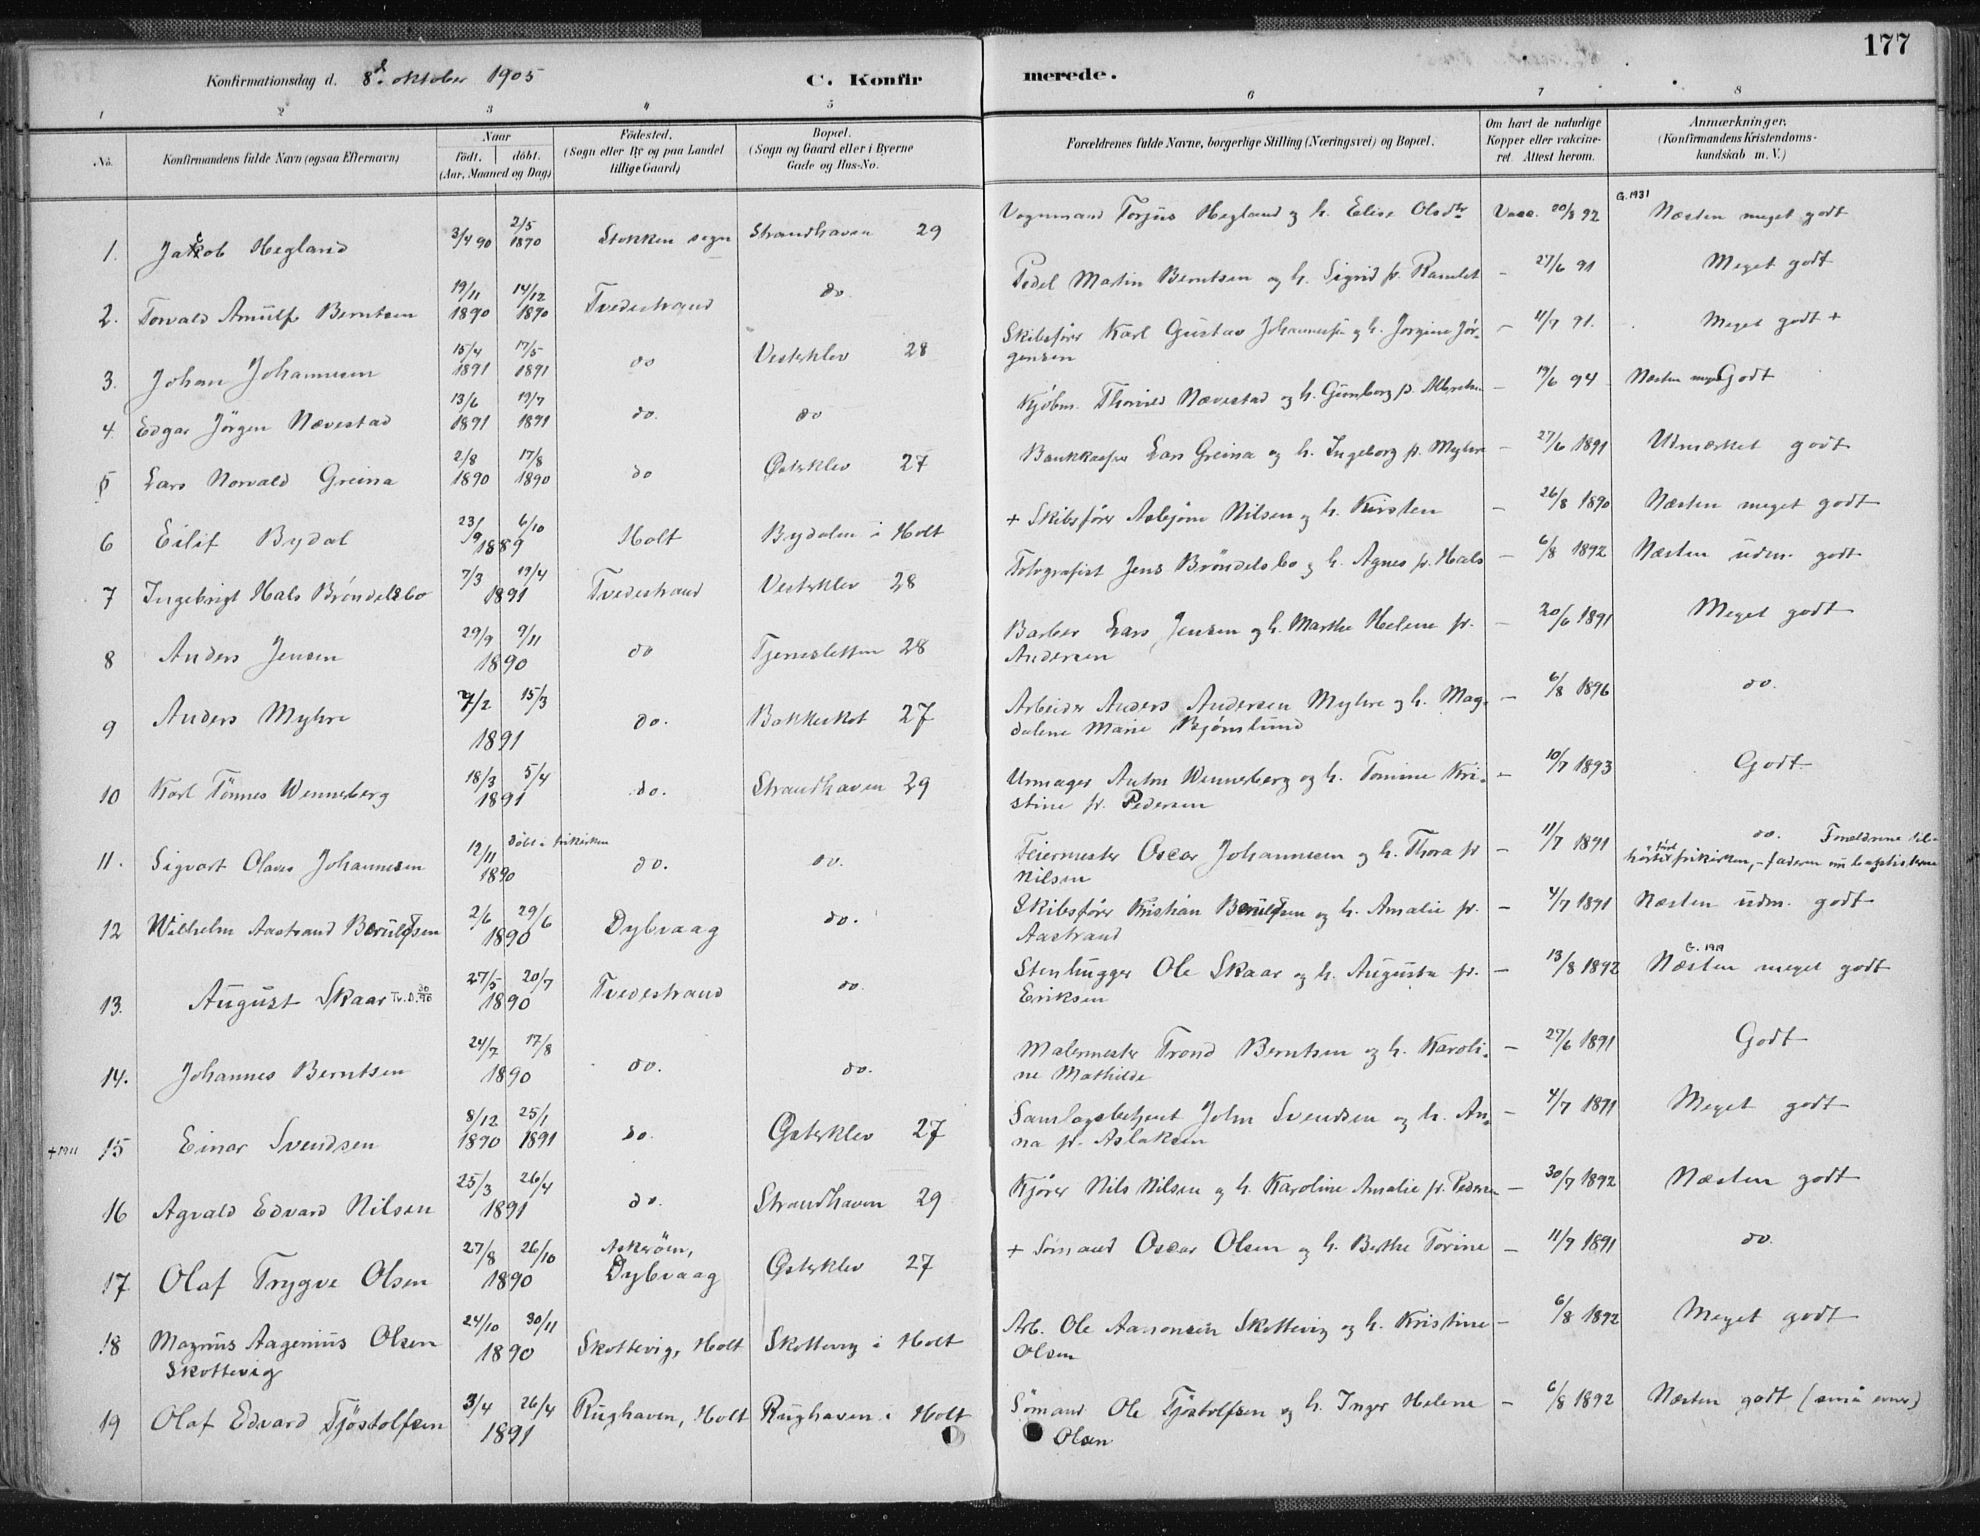 177
Konfirmationsdag d. 8d. oktober 1905 C. Konfirmerede.
1 2 3 4 5 6 7 8
No. Konfirmandens fulde Navn (ogsaa Efternavn) Naar födt. döbt. (Aar, Maaned og Dag) Födested. (Sogn eller By og paa Landet tillige Gaard) Bopæl. (Sogn og Gaard eller i Byerne Gade og Hus-No. Forældrenes fulde Navne, borgerlige Stilling (Næringsvei) og Bopæl. Om havt de naturlige Kopper eller vakcineret. Attest herom. Anmærkninger. (Konfirmandens Kristendomskundskab m. V.)
1. Jakob Hegland 3/4 90 2/5 1890 Stokken sogn Strandhaven 29 Vognmand Torjus Hegland og h. Elise Olsdtr Vacc. 20/8 92 G. 1931 Næsten meget godt
2. Torvald Arnulf Berntsen 19/11 1890 14/12 1890 Tvedestrand do Pedel Martin Berntsen og h. Sigrid f. Ramlet - 27/6 91 Meget godt
3. Johan Johannesen 15/4 1891 17/5 1891 do Vesterklev 28 Skibsfører Karl Gustav Johannesen og h. Jørgine Jør-
gensen - 11/7 91. Meget godt +
4. Edgar Jörgen Nævestad 13/6 1891 19/7 1891 do. do Kjøbm. Thorvald Nævestad og h. Gunborg f. Albretsen - 19/6 94 Næsten meget Godt
5 Lars Norvald Greina 2/8 1890 17/8 1890 do Østerklev 27 Bankkasser Lars Greina og h. Ingeborg f. Myhre - 27/6 1891 Udmærket godt
6 Eilif Bydal 23/9 6/10 1889 Holt Bydalen i Holt + Skibsfører Asbjørn Nilsen og h. Kirsten - 26/8 1890 Næsten meget godt
7 Ingebrigt Hals Brøndelsbo 7/3 19/4 1891 Tvedestrand Vesterklev 28 Fotografist Jens Bröndelsbo og h. Agnes f. Hals - 6/8 1892 Næsten udm. godt
8 Anders Jensen 29/9 9/11 1890 do Tjenesletten 28 Barber Lars Jensen og h. Marthe Helene f.
Andersen - 20/6 1891 Meget godt
9 Anders Myhre 7/2 15/3 1891 do. Bakkeskot 27 Arbeider Anders Andersen Myhre og h. Mag-
dalene Marie Bjørnslund - 6/8 1896 do.
10 Karl Tönnes Wenneberg 18/3 5/4 1891 do. Strandhaven 29 Urmager Anton Wenneberg og h. Tomine Kri-
stine f. Pedersen - 10/7 1893 Godt
11. Sigvart Olaus Johannesen 12/11 1890 döbt i frikirken do. do. Feiermester Oscar Johannesen og h. Thora f.
Nilsen - 11/7 1891 do. Forældrene til-
hörte först frikirken, - faderen nu baptisterne
12 Wilhelm Aastrand Berulfsen 2/6 29/6 1890 Dybvaag do. Skibsfører Kristian Berulfsen og h. Amalie f.
Aastrand - 4/7 1891 Næsten udm. godt
13. August Skaar Tv. D. 30/96 27/5 20/7 1890 Tvedestrand do. Stenhugger Ole Skaar og h. Augusta f.
Eriksen - 13/8 1892 G. 1919 Næsten meget godt
14. Johannes Berntsen 24/7 17/8 1890 do. do. Malermester Trond Berntsen og h. Karoli-
ne Mathilde - 27/6 1891 Godt
+ 1911 15 Einar Svendsen 8/12 1890 25/1 1891 do. Østerklev 27 Samlagsbetjent John Svendsen og h. An-
na f. Aslaksen - 4/7 1891 Meget godt
16 Agvald Edvard Nilsen 25/3 26/4 1891 do. Strandhaven 29 Kjører Nils Nilsen og h. Karoline Amalie f. Pedersen - 30/7 1892 Næsten godt
17 Olaf Trygve Olsen 27/8 26/10 1890 Askerøen, Dybvaag Østerklev 27 + Sømand Oscar Olsen og h. Berthe Torine - 11/7 1891 do.
18 Magnus Aagenius Olsen
Skottevig 24/10 30/11 1890 Skottevig, Holt Skottevig i Holt Arb. Ole Aanonsen Skottevig og h. Kristine
Olsen - 6/8 1892 Meget godt
19 Olaf Edvard Tjöstolfsen 3/4 26/4 1891 Rughaven, Holt Rughaven i Holt Sömand Ole Tjöstolfsen og h. Inger Helene
Olsen - 6/8 1892 Næsten godt (små evner)